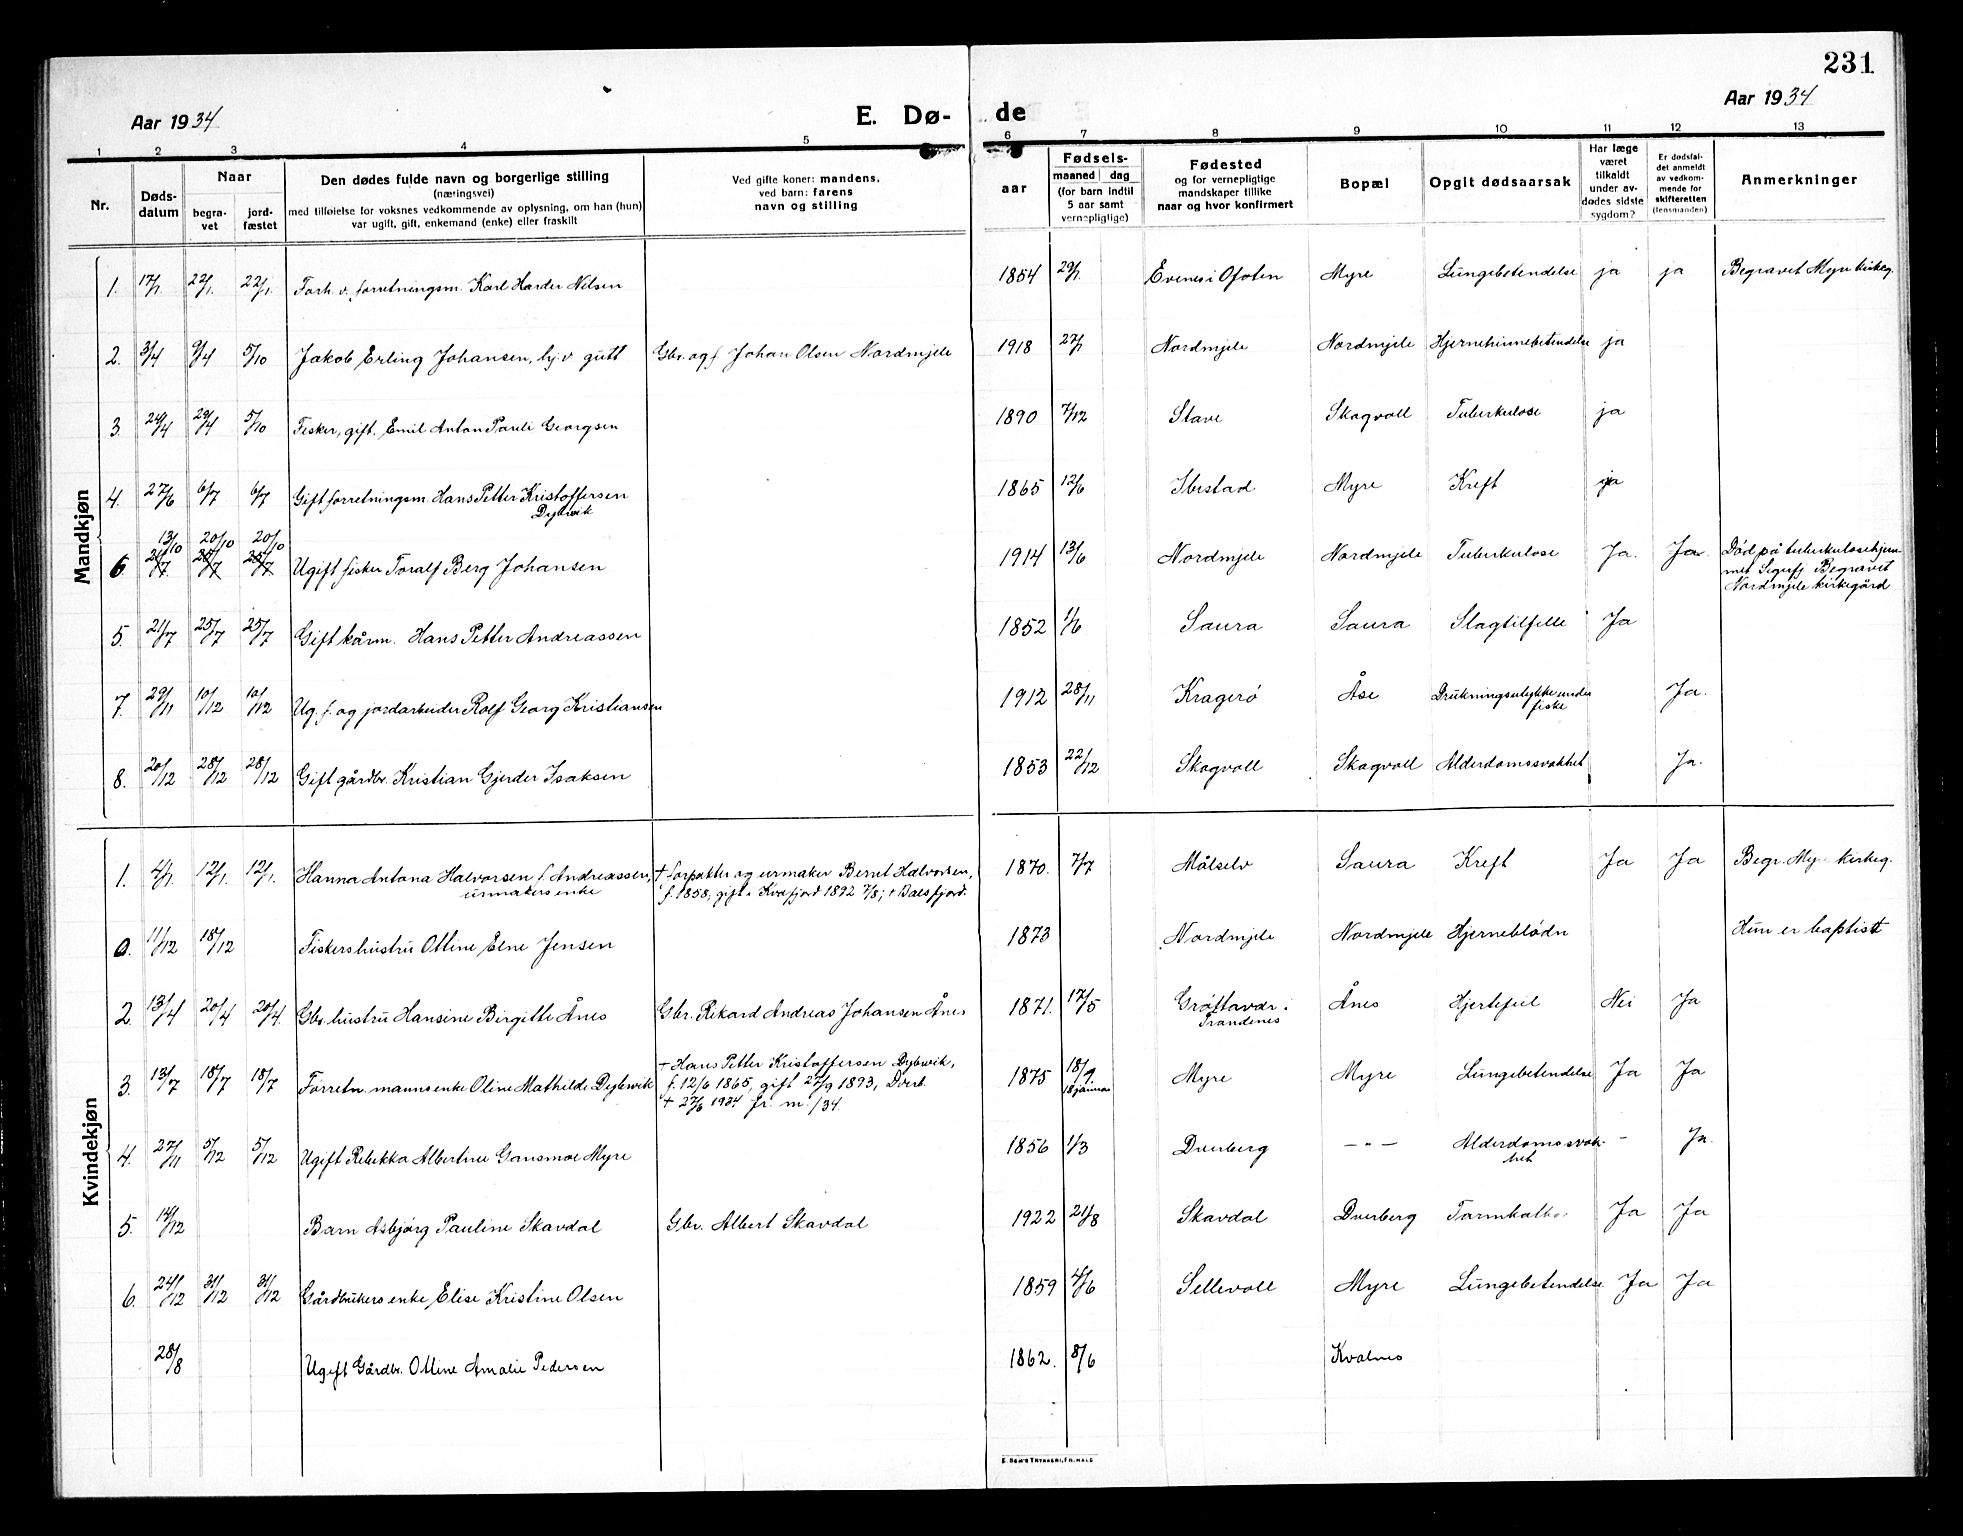 231
Aar 1934
E. Dø-
de
Aar 1934
1 2 3 4 5 6 7 8 9 10 11 12 13
Nr.
Døds-
datum
Naar
begra-
vet
jord-
fæstet
Den dødes fulde navn og borgerlige stilling
(næringsvei)
med tilføielse for voksnes vedkommende av oplysning, om han (hun)
var ugift, gift, enkemand (enke) eller fraskilt
Ved gifte koner: mandens,
ved barn: farens
navn og stilling
aar
Fødsels-
maaned dag
(for barn indtil
5 aar samt
vernepligtige)
Fødested
og for vernepligtige
mandskaper tillike
naar og hvor konfirmert
Bopæl
Opgit dødsaarsak
Har læge
været
tilkaldt
under av-
dødes sidste
sygdom?
Er dødsfal-
det anmeldt
av vedkom-
mende for
skifteretten
(lensmanden)
Anmerkninger
Mandkjøn
1. 17/1 22/1 22/1 Forh.v. forretningsm. Karl Harder Nilsen 1854 29/1 Evenes i Ofoten Myre Lungebetendelse ja ja Begravet Myre kirkeg.
2. 3/4 9/4 5/10 Jakob Erling Johansen, hj.v gutt Gbr. og f. Johan Olsen Nordmjele 1918 27/1 Nordmjele Nordmjele Hjernehinnebetendelse ja
3. 24/4 29/4 5/10 Fisker, gift. Emil Anton Pauli Georgsen 1890 7/12 Stave Skogvoll Tuberkulose ja
4. 27/6 6/7 6/7 Gift forretningsm. Hans Petter Kristoffersen
Dybwik 1865 12/6 Ibestad Myre Kreft ja
13/10 20/10 20/10
6. 21/7 25/7 25/7 Ugift fisker Toralf Berg Johansen 1914 13/6 Nordmjele Nordmjele Tuberkulose Ja. Ja. Død på tuberkulosehjem-
met Begravet
Nordmjele kirkegård
5. 21/7 25/7 25/7 Gift kårm. Hans Petter Andreassen 1852 1/6 Saura Saura Slagtilfelle Ja
7. 29/11 10/12 10/12 Ug. f. og jordarbeider Rolf Georg Kristiansen 1912 28/11 Kragerö Åse Drukningsulykke under
fiske Ja.
8. 20/12 28/12 28/12 Gift gårdbr. Kristian Gjerder Isaksen 1853 22/12 Skogvoll Skogvoll Alderdomssvakhet Ja.
Kvindekjøn
1. 4/1 12/1 12/1 Hanna Antona Halvorsen f. Andreassen,
urmakers enke + forpakter og urmaker Bernt Halvorsen,
f. 1858, gift i Kvæfjord 1892 7/8; + Balsfjord. 1870. 7/7 Målselv Saura Kreft Ja Ja Begr. Myre kirkeg.
0. 11/12 18/12 Fiskershustru Otline Elne Jensen 1873 Nordmjele Nordmjele Hjerneblødn Hun er baptist
2. 13/4 20/4 20/4. Gbr. hustru Hansine Birgitte Ånes Gbr. Rikard Andreas Johansen Ånes 1871. 17/5 Grøttavær i
Trondenes Ånes Hjertefeil Nei Ja
3. 13/7 18/7 18/7 Forretn. manns enke Oline Mathilde Dybwik + Hans Petter Kristoffersen Dybwik,
f. 12/6 1865, gift 27/9 1893, Dverb.
+ 27/6 1934 fr. m. /34. 1875 18/9.
18 januar Myre Myre Lungebetendelse Ja Ja
4. 27/11 5/12 5/12 Ugift Rebekka Albertine Gansmoe Myre 1856 1/3 Dverberg — " — Alderdomssvak-
het - Ja.
5. 14/12 Barn Asbjørg Pauline Skavdal Gbr. Albert Skavdal 1922 21/8 Skavdal Dverberg Ja Ja
6. 24/12 31/12 31/12 Gårdbrukers enke Elise Kristine Olsen 1859 4/6 Sellevoll Myre Lungebetendelse Ja Ja
28/8 Ugift Gårdbr. Otline Amalie Pedersen 1862. 8/6 Kvalnes
E. SEM'S TRYKKERI, FR.HALD